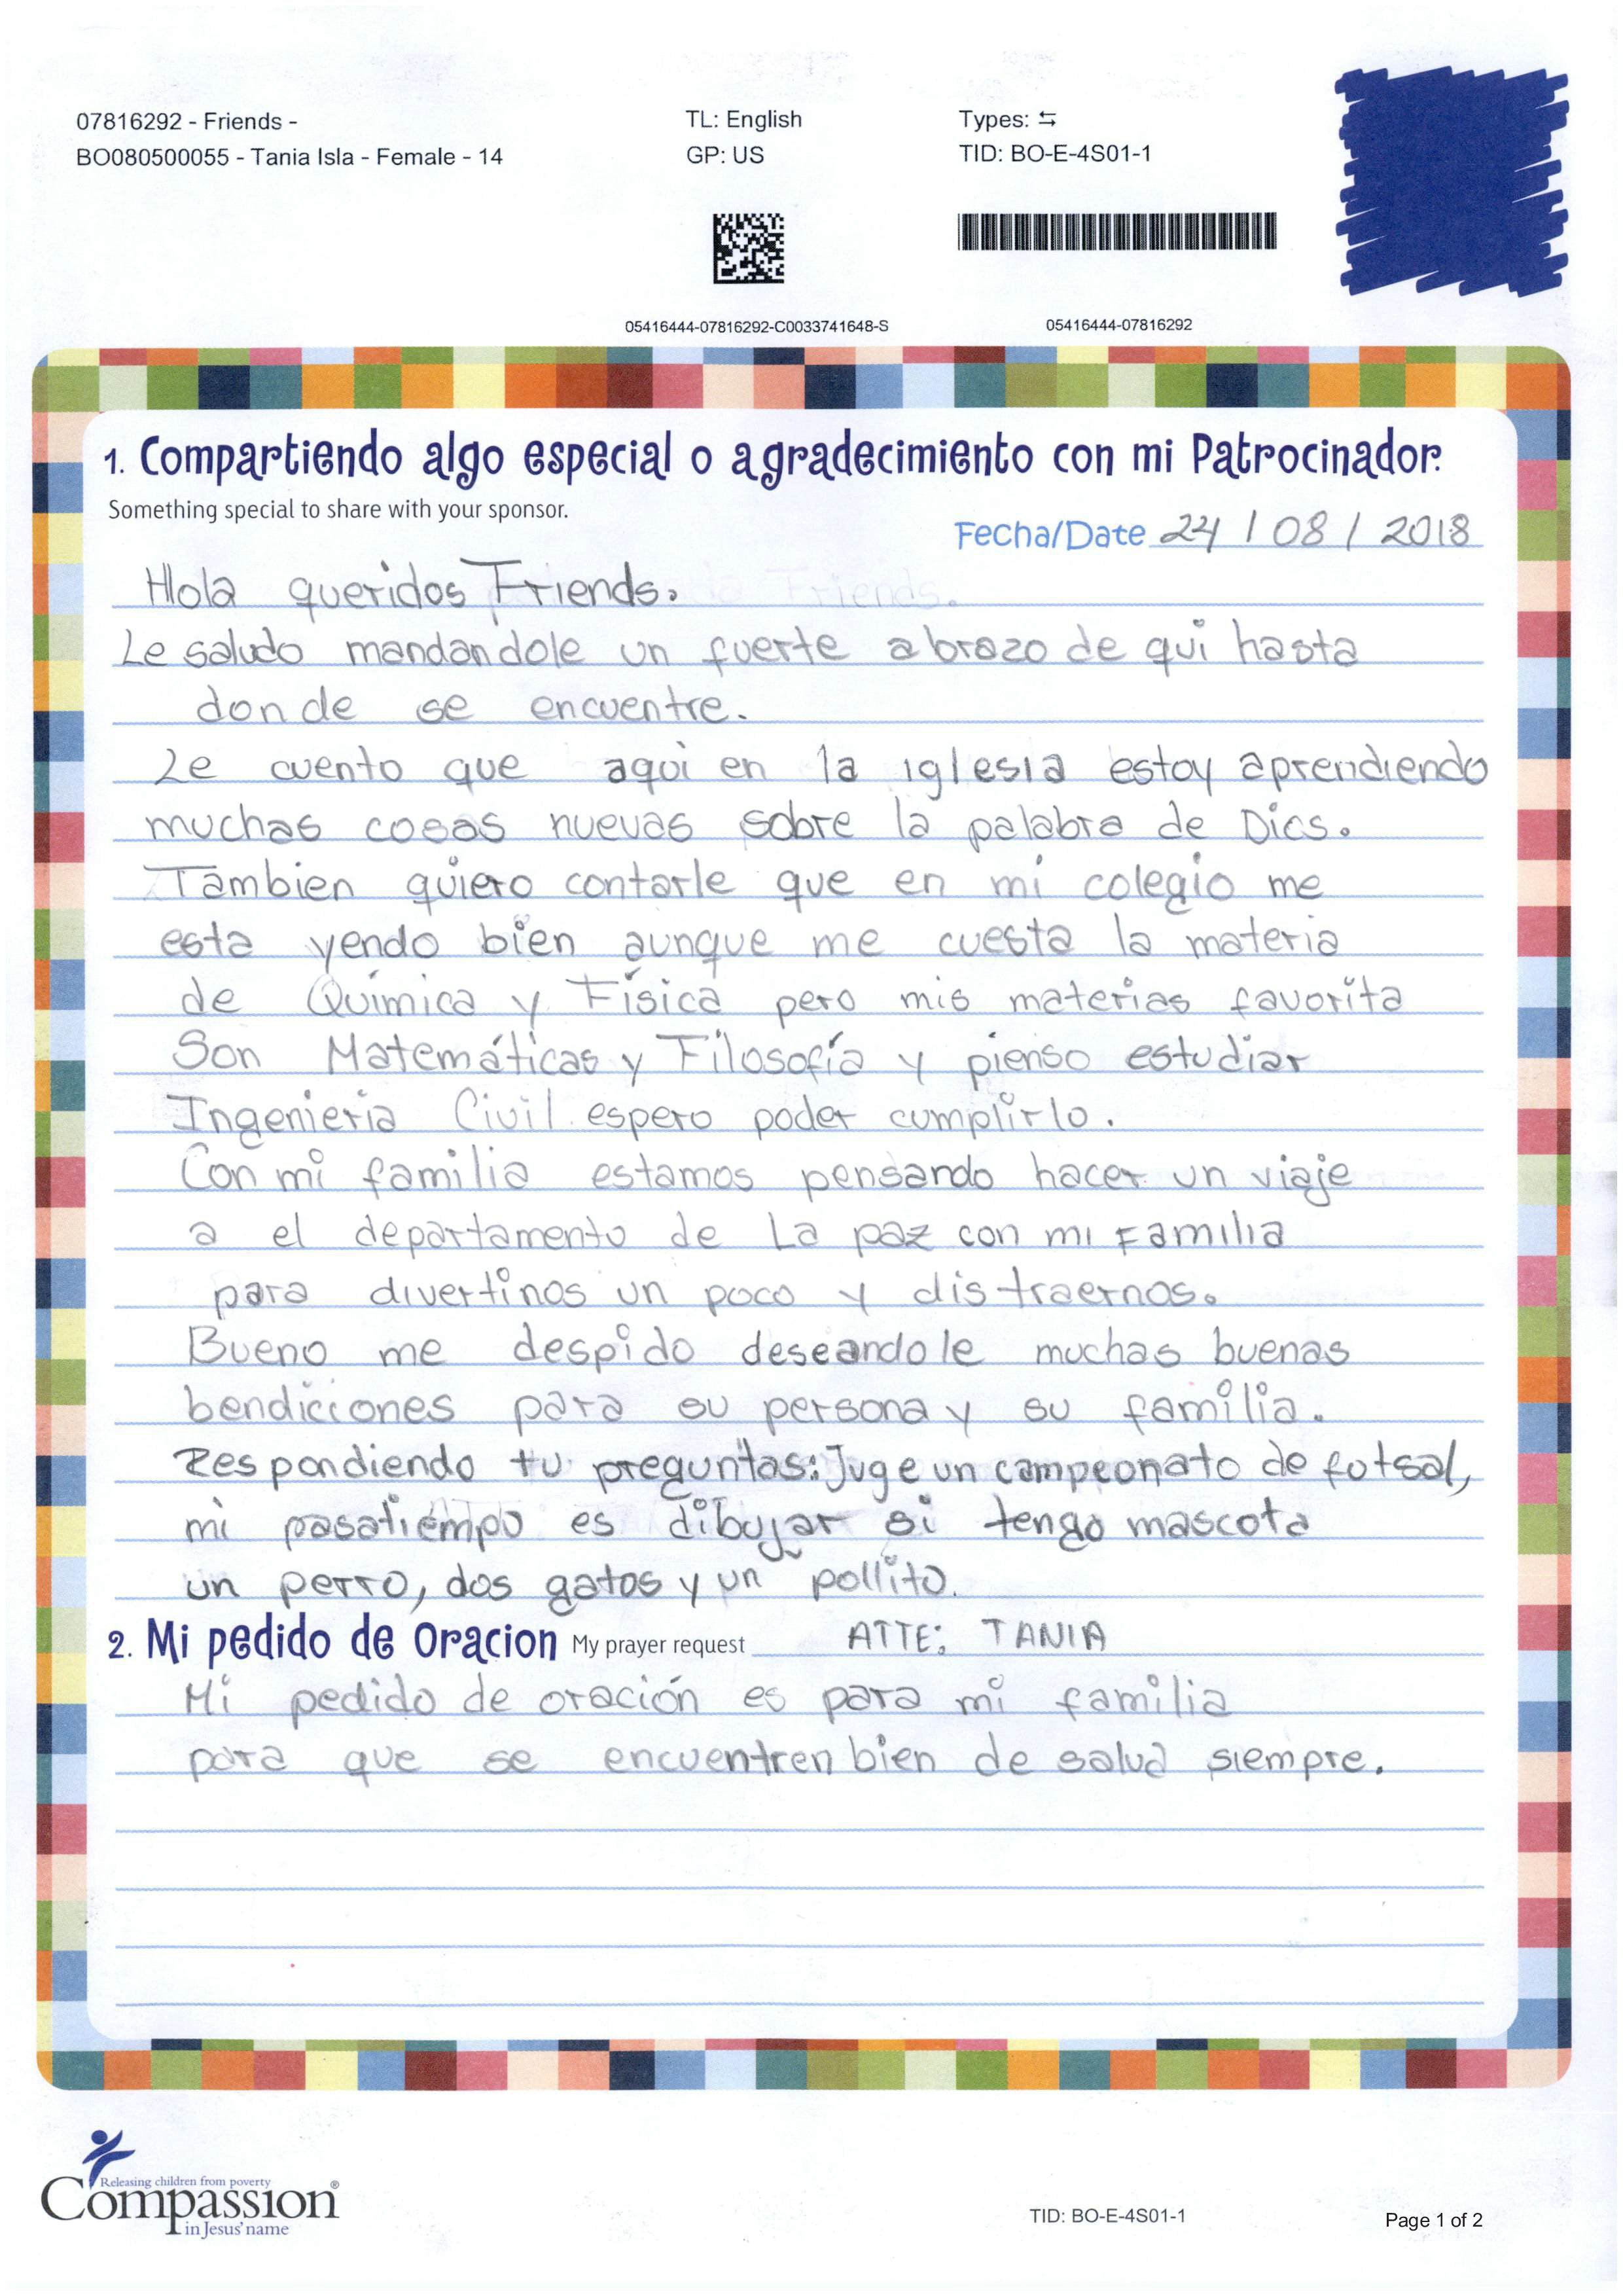 07816292 - Friends -
BO080500055 - Tania Isla - Female - 14
TL: English
GP: US
Types: ⇆
TID: BO-E-4S01-1
05416444-07816292-C0033741648-S
05416444-07816292
1. Compartiendo algo especial o agradecimiento con mi Patrocinador.
Something special to share with your sponsor.
Fecha/Date 24 / 08 / 2018
Hola queridos Friends.
Le saludo mandandole un fuerte abrazo de qui hasta
donde se encuentre.
Le cuento que aqui en la iglesia estoy aprendiendo
muchas cosas nuevas sobre la palabra de Dios.
Tambien quiero contarle que en mi colegio me
esta yendo bien aunque me cuesta la materia
de Química y Física pero mis materias favorita
Son Matemáticas y Filosofía y pienso estudiar
Ingenieria Civil espero poder cumplirlo.
Con mi familia estamos pensando hacer un viaje
a el departamento de La paz con mi Familia
para divertinos un poco y distraernos.
Bueno me despido deseandole muchas buenas
bendiciones para su persona y su familia.
Respondiendo tu preguntas: Juge un campeonato de futsal,
mi pasatiempo es dibujar si tengo mascota
un perro, dos gatos y un pollito.
2. Mi pedido de Oracion My prayer request ATTE: TANIA
Mi pedido de oración es para mi familia
para que se encuentren bien de salud siempre.
Releasing children from poverty
Compassion®
in Jesus' name
TID: BO-E-4S01-1
Page 1 of 2